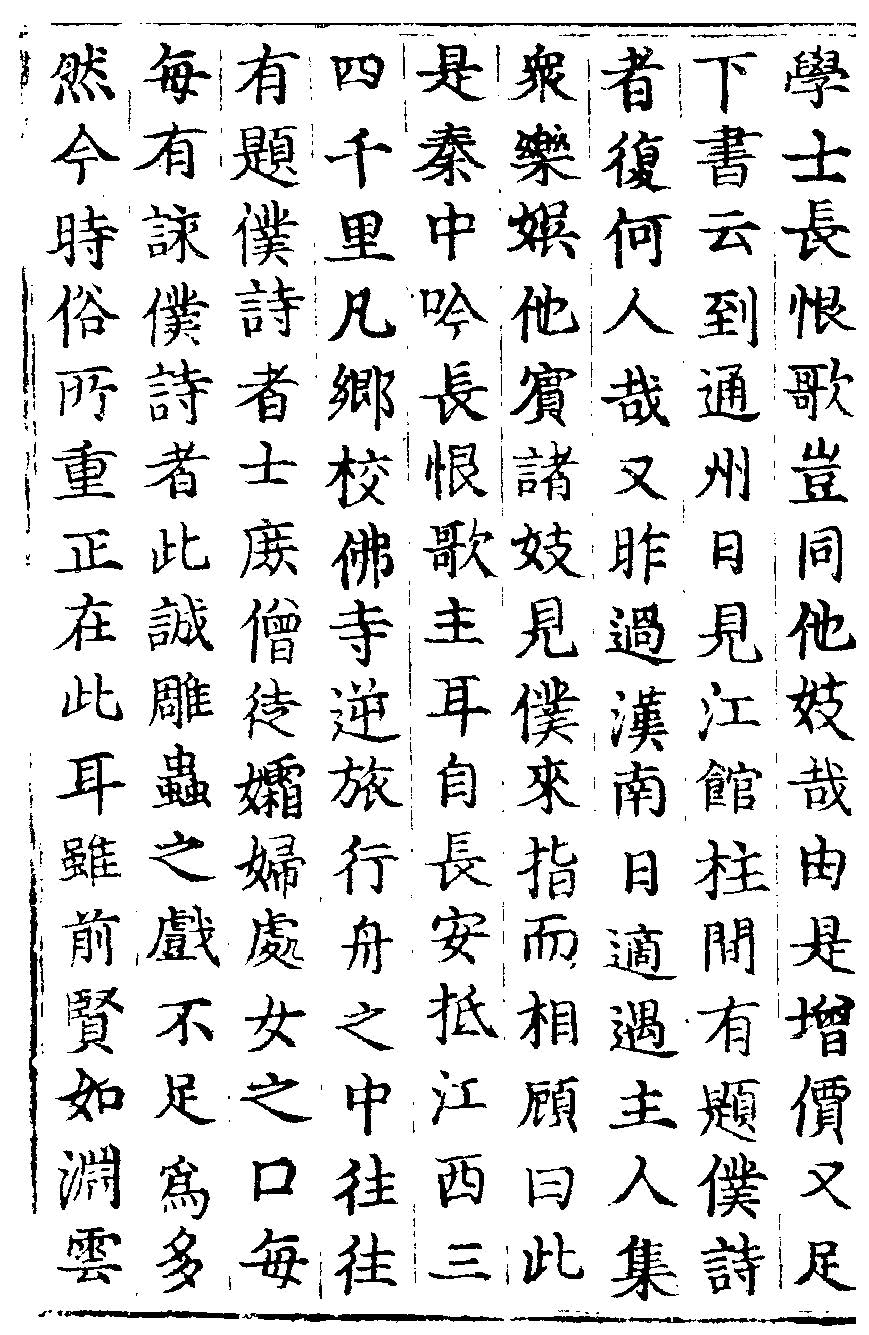 學士長恨歌豈同他妓哉由是增價又足
下書云到通州日見江館柱間有題僕詩
者復何人哉又昨過漢南日適遇主人集
衆樂娛他賔諸妓見僕來指而相顧曰此
是秦中吟長恨歌主耳自長安抵江西三
四千里凡鄉校佛寺逆旅行舟之中往往
有題僕詩者士庻僧徒孀婦處女之口每
每有詠僕詩者此誠雕蟲之戲不足爲多
然今時俗所重正在此耳雖前賢如淵雲